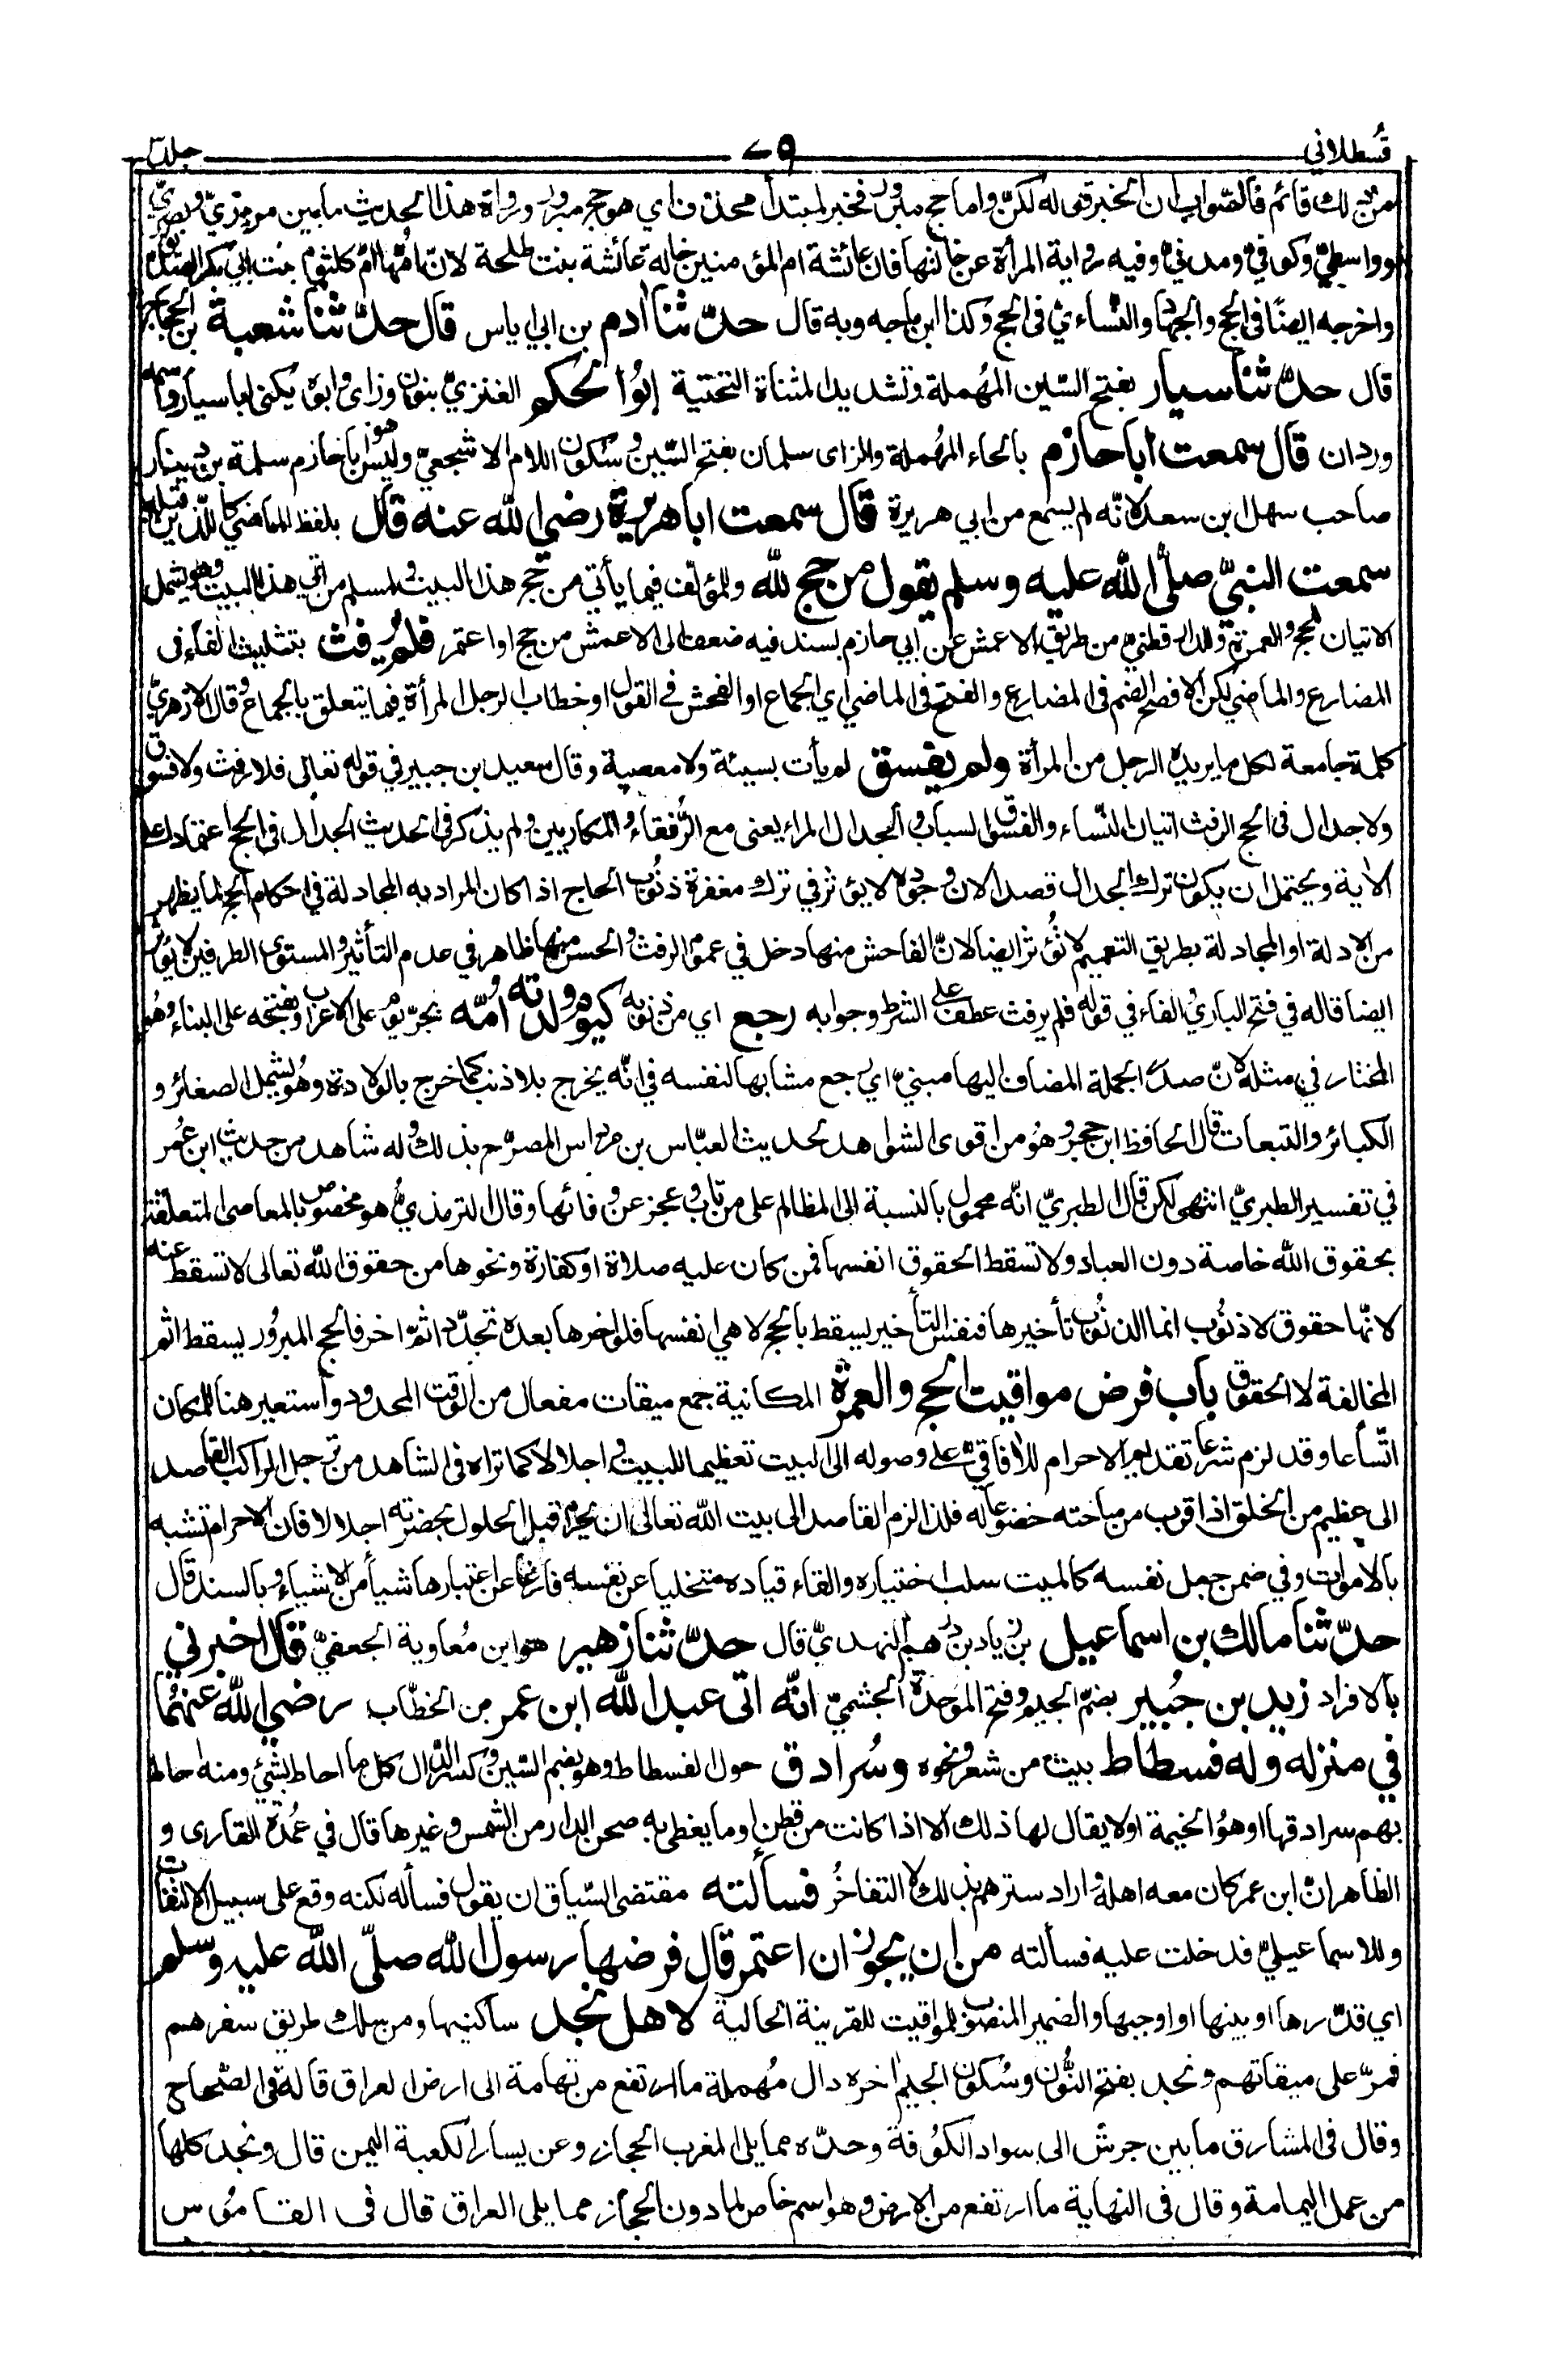 قسطلاني ٩٧ جلد٣
من ذلك قائم فالصواب ان الخبر قوله لكنّ واما حج مبرور فخبر لمبتدأ محذوف اي هو حج مبرور ورواة هذا الحديث ما بين مروزيّ وبصريّ
وواسطيّ وكوفيّ ومدنيّ وفيه رواية المرأة عن خالتها فان عائشة ام المؤمنين خالة عائشة بنت طلحة لانّ امّها امّ كلثوم بنت ابي بكر الصديق
واخرجه ايضًا في الحج والجهاد والنّساءي في الحج وكذا ابن ماجه وبه قال حدّثنا اٰدم بن ابي اياس قال حدّثنا شعبة بن الحجاج
قال حدّثنا سيار بفتح السّين المهملة وتشديد المثناة التحتية ابُوا لحكم العنزيّ بنون وزاى وابوه يكنى ابا سيار واسمه
وردان قال سمعت ابا حازم بالحاء المهملة والزاى سلمان بفتح السّين وسُكون اللام الاشجعيّ وليس هو ابا حازم سلمة بن دينار
صاحب سهل ابن سعد لانّه لم يسمع من ابي هريرة قال سمعت ابا هريرة رضي الله عنه قال بلفظ الماضي كاللّذين قبله
سمعت النبيّ صلى الله عليه وسلم يقول من حج لله وللمؤلف فيما يأتي من حج هذا البيت ولمسلم من اتى هذا البيت وهو يشمل
الاتيان للحج والعمرة وللدارقطنيّ من طريق الاعمش عن ابي حازم بسند فيه ضعف الى الاعمش من حج او اعتمر فلم يرفث بتثليث الفاء في
المضارع والماضي لكن الافصح الضم في المضارع والفتح في الماضي اي الجماع او الفحش في القول او خطاب الرجل المرأة فيما يتعلق بالجماع وقال الازهريّ
كلمة جامعة لكل ما يريده الرجل من المرأة ولم يفسق لم يأت بسيئة ولا معصية وقال سعيد بن جبير في قوله تعالى فلا رفث ولا فسوق
ولا جدال في الحج الرفث اتيان النّساء والفسوق السباب والجدال المراء يعنى مع الرّفقاء والمكاريين ولم يذكر في الحديث الجدال في الحج اعتمادا على
الاٰية ويحتمل ان يكون ترك الجدال قصدا لان وجوده لا يؤثر في ترك مغفرة ذنُوب الحاج اذا كان المراد به المجادلة في احكام الحج لما يظهر
من الادلة او المجادلة بطريق التعميم لا تُؤثر ايضا لانّ الفاحش منها دخل في عموم الرفث والحسن منها ظاهر في عدم التأثير والمستوى الطرفين لا يُؤثر
ايضا قاله في فتح الباري والفاء في قوله فلم يرفث عطف على الشرط وجوابه رجع اي من ذنوبه كيوم ولدته اُمّه بجرّ يوم على الاعراب وبفتحه على البناء وهُو
المختار في مثله لانّ صدر الجملة المضاف اليها مبنيّ اي رجع مشابها لنفسه في انّه يخرج بلا ذنب كما خرج بالولادة وهُو يشمل الصغائر و
الكبائر والتبعات قال الحافظ ابن حجر وهُو من اقوى الشواهد لحديث العبّاس بن مرداس المصرّح بذلك وله شاهد من حديث ابن عُمر
في تفسير الطبريّ انتهى لكن قال الطبريّ انّه محمول بالنسبة الى المظالم على من تاب وعجز عن وفائها وقال الترمذيّ هو مخصوص بالمعاصى المتعلقة
بحقوق الله خاصة دون العباد ولا تسقط الحقوق انفسها فمن كان عليه صلاة او كفارة ونحوها من حقوق الله تعالى لا تسقط عنه
لانّها حقوق لا ذنُوب انما الذنُوب تأخيرها فنفس التأخير يسقط بالحج لا هي انفسها فلو اخرها بعده تجدّد اثمّ اخر فالحج المبرُور يسقط اثم
المخالفة لا الحقوق باب فرض مواقيت الحج والعمرة المكانية جمع ميقات مفعال من الوقت المحدود واستعير هنا للمكان
اتّساعا وقد لزم شرعا تقديم الاحرام للاٰفاقيّ على وصوله الى البيت تعظيما للبيت واجلالا كما تراه في الشاهد من ترجل الراكب القاصد
الى عظيم من الخلق اذا قرب من ساحته خضوعا له فلذا لزم القاصد الى بيت الله تعالى ان يحرم قبل الحلول بحضرته اجلالا فان الاحرام تشبه
بالاموات وفي ضمن جعل نفسه كالميت سلب اختياره والقاء قياده متخليا عن نفسه فارغا عن اعتبارها شيأ من الاشياء وبالسند قال
حدّثنا مالك بن اسماعيل بن زياد بن درهم النهديّ قال حدّثنا زهير هو ابن مُعاوية الجعفيّ قال اخبرني
بالافراد زيد بن جُبير بضمّ الجيم وفتح الموحدة الجشميّ انّه اتى عبد الله ابن عمر بن الخطّاب رضي الله عنهُما
في منزله وله فسطاط بيت من شعر ونحوه وسُرادق حول الفسطاط وهو بضم السّين وكسر الدّال كل ما احاط بشئ ومنه احاط
بهم سرادقها او هُو الخيمة او لا يقال لها ذلك الا اذا كانت من قطن او ما يغطى به صحن الدار من الشمس وغيرها قال في عُمدة القارى و
الظاهر انّ ابن عمر كان معه اهله واراد سترهم بذلك لا التفاخُر فسألته مقتضى السّياق ان يقول فسأله لكنه وقع على سبيل الالتفات
وللاسماعيليّ فدخلت عليه فسألته من اين يجوز ان اعتمر قال فرضها رسول الله صلّى الله عليه وسلم
اي قدّرها او بينها او اوجبها والضمير المنصوب للمواقيت للقرينة الحالية لاهل نجد ساكنيها ومن سلك طريق سفرهم
فمرّ على ميقاتهم ونجد بفتح النُّون وسُكون الجيم اٰخره دال مُهملة ما ارتفع من تهامة الى ارض العراق قاله في الصّحاح
وقال في المشارق ما بين جرش الى سواد الكوُفة وحدّه مما يلى المغرب الحجاز وعن يسار الكعبة اليمن قال ونجد كلها
من عمل اليمامة وقال في النهاية ما ارتفع من الارض وهو اسم خاص لما دون الحجاز مما يلى العراق قال فى القامُوس